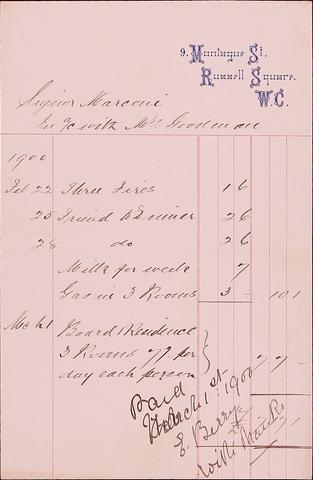 9. Montague St.
Russell Square.
W.C.
Signor Marconi
In a/c with Mrs. Goodman
1900
Feb 22 Three Fires 1 6
25 Friend to Dinner 2 6
28 do 2 6
Milk for week 7
Gas in 3 Rooms 3 - 10 1
Mch 1 Board & Residence
3 Rooms 7/ per
day each person 7 -
Paid
March 1st 1900
E. Berry
with thanks